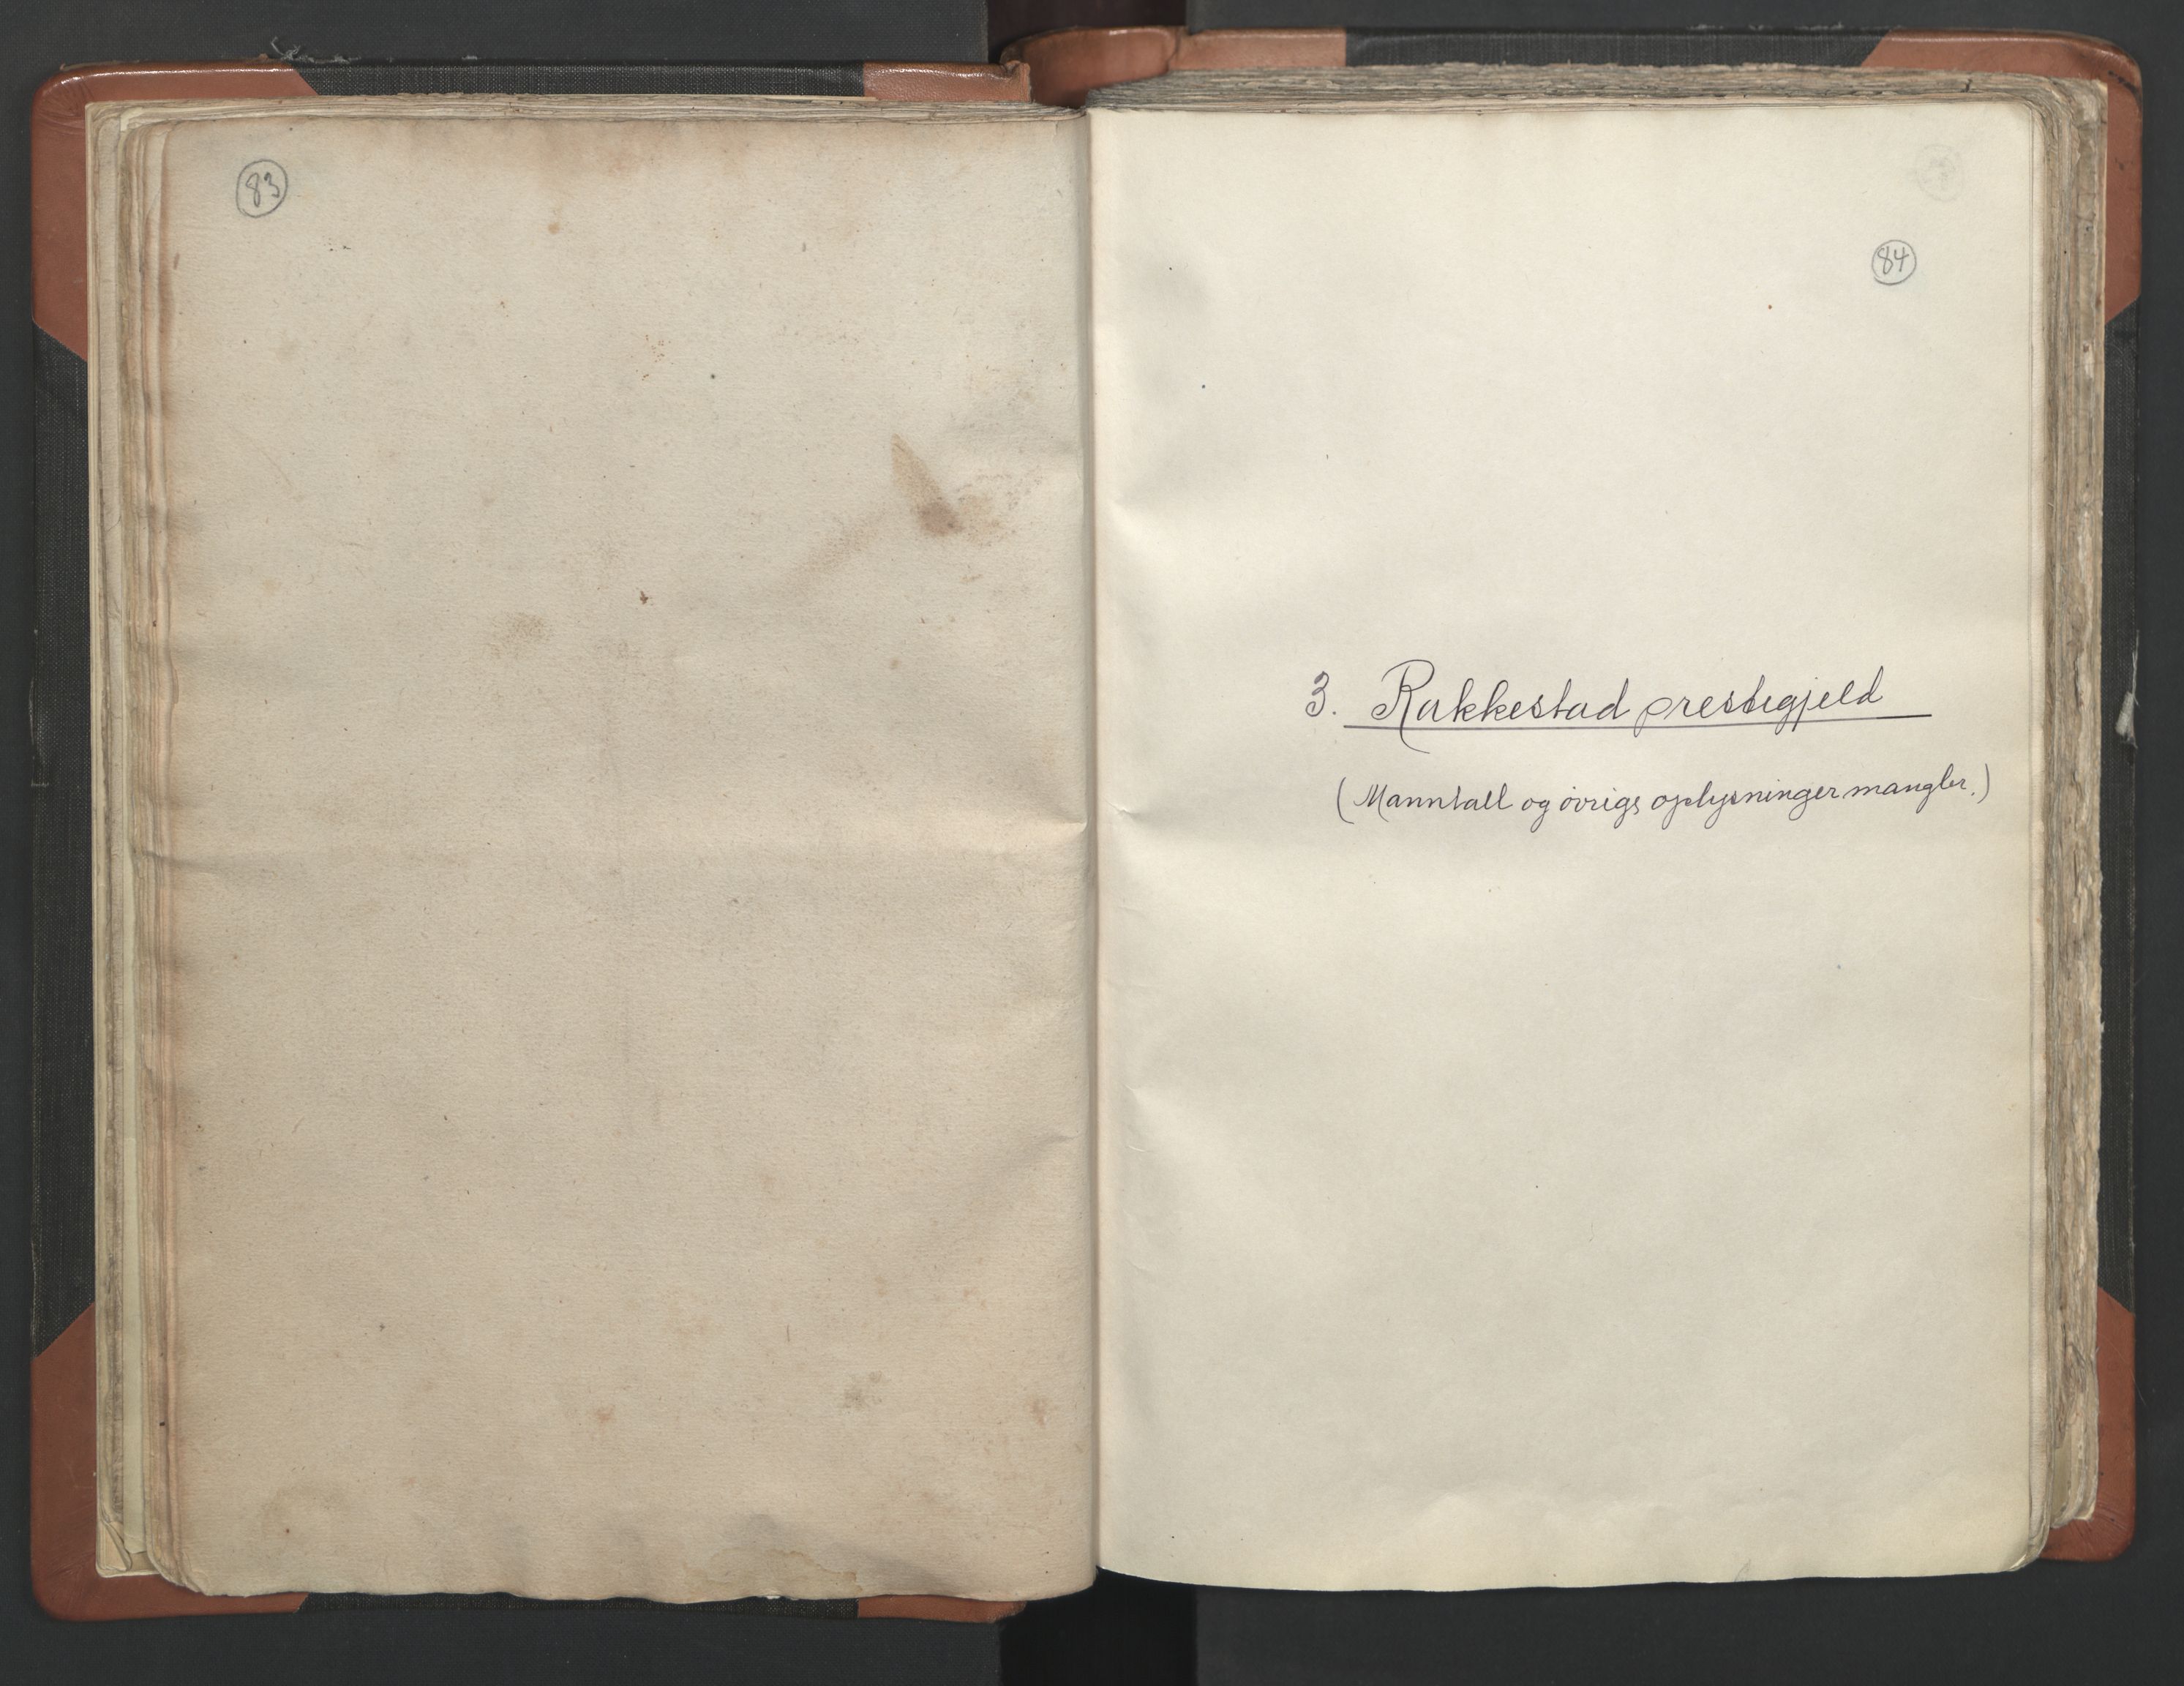 83
84
3. Rakkestad prestegjeld
(Manntall og øvrige oplysninger mangler.)